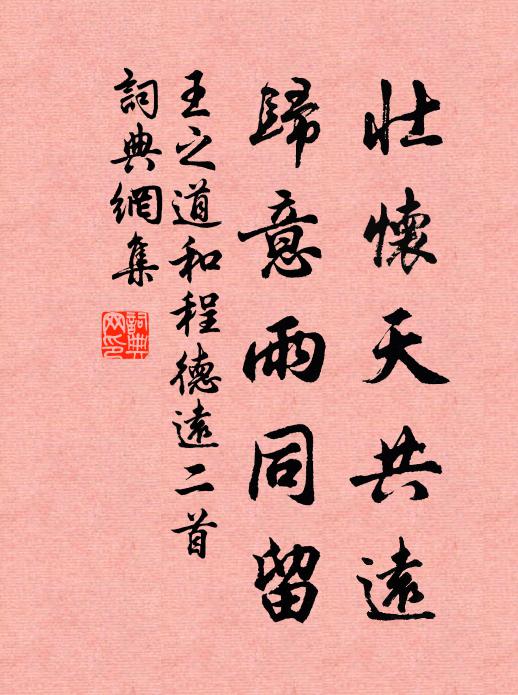 壯懷天共遠
歸意雨同留
王之道和程德遠二首
詞典網集
詞典
网印